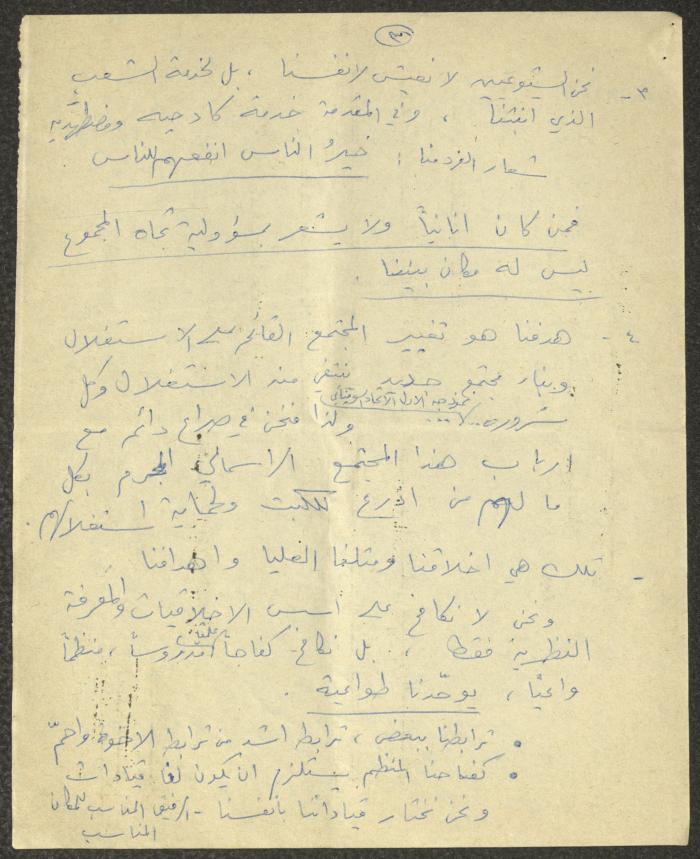 ٣
٣- نحن الشيوعيين لا نعيش لانفسنا ، بل لخدمة الشعب
الذي انبتنا ، وفي المقدمة خدمة كادحيه ومضطهَديه
شعار الفرد منا : خيرُ الناس انفعهم للناس
فمن كان انانياً ولا يشعر بمسؤولية تجاه المجموع
ليس له مكان بيننا .
٤- هدفنا هو تغيير المجتمع القائم على الاستغلال
وبناء مجتمع جديد ننتفي منه الاستغلال وكل
نموذجه الاول الاتحاد السوفياتي
شروره .. ولذا فنحن في صراع دائم مع
ارباب هذا المجتمع الرأسمالي المجرم بكل
ما لهم من اذرع للكبت ولحماية استغلالهم
- تلك هي اخلاقنا ومثلنا العليا واهدافنا
ونحن لا نكافح على اسس الاخلاقيات والمعرفة
النظرية فقط ، بل نكافح كفاحاً مدروساً ، منظماً
واعياً ، يوحّدنا طواعية .
• ترابطنا ببعض ، ترابط اشد من ترابط الاخوة
• كفاحنا المنظم يستلزم ان يكون لنا قيادات
ونحن نختار قياداتنا بانفسنا - الرفيق المناسب للمكان
المناسب